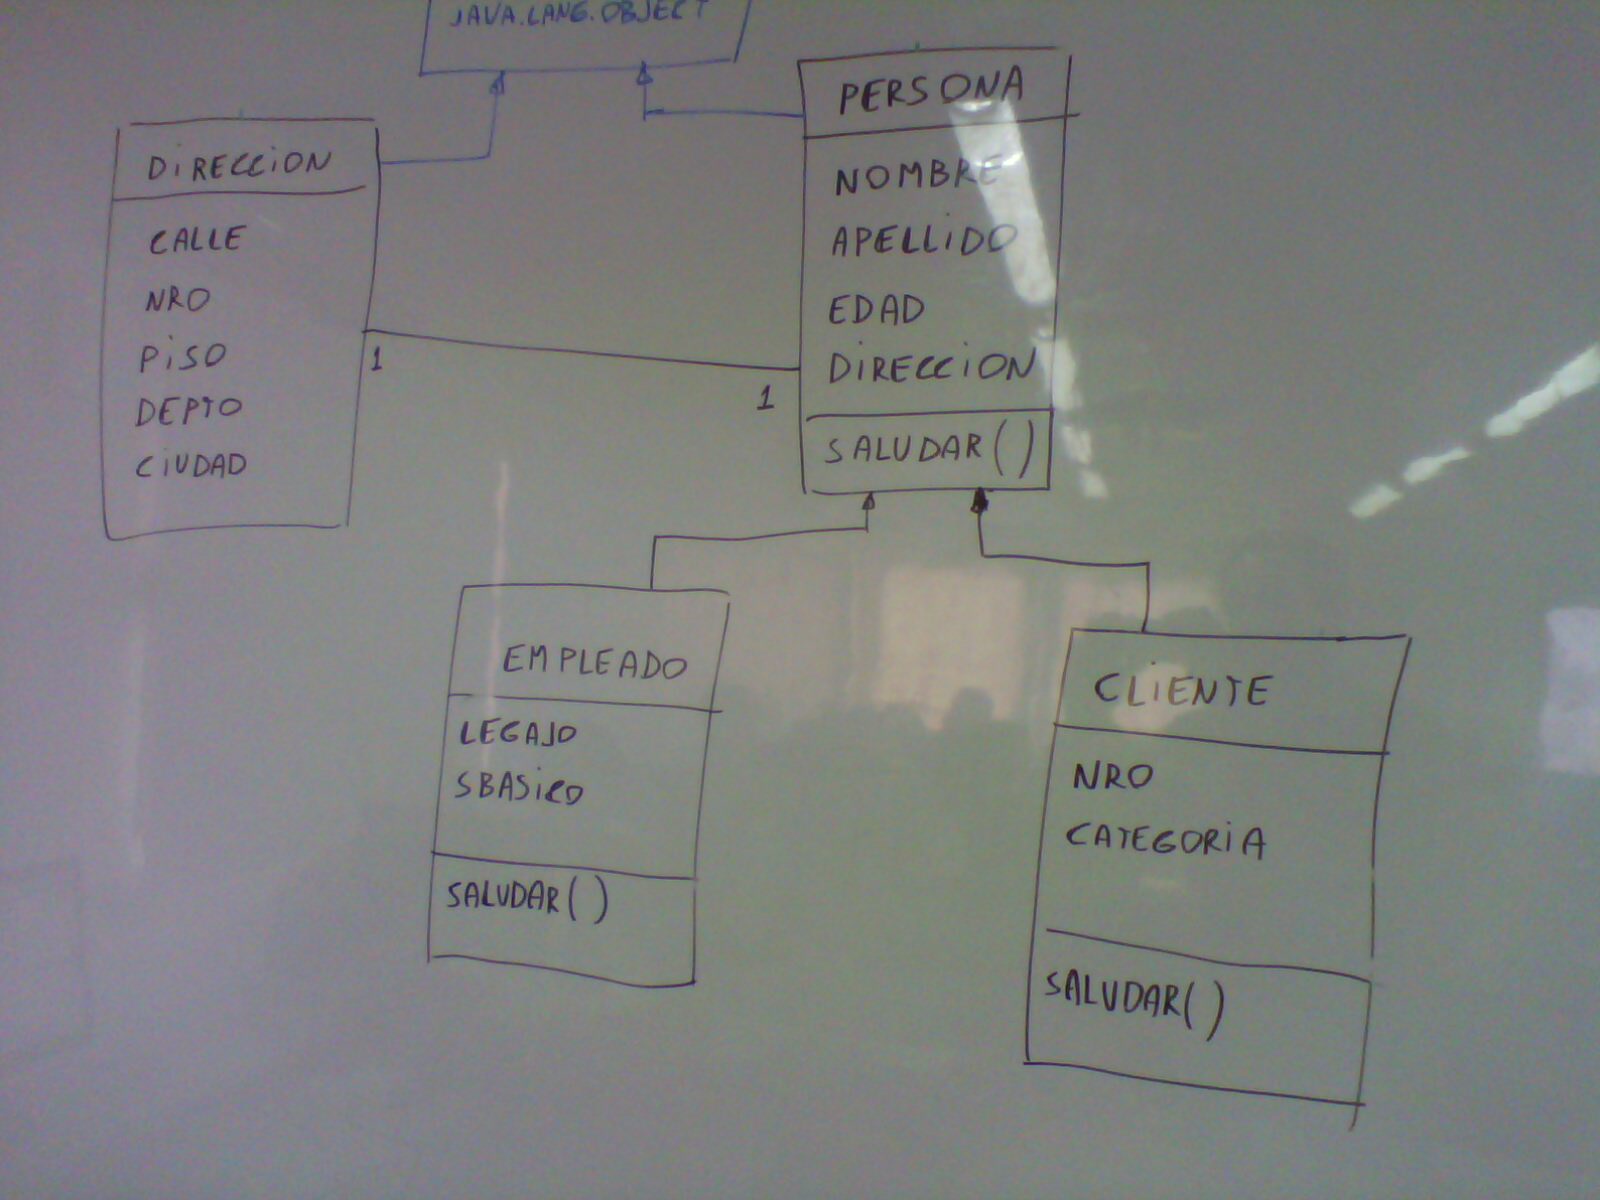 JAVA.LANG.OBJECT
DIRECCION
CALLE
NRO
PISO
DEPTO
CIUDAD
1
1
PERSONA
NOMBRE
APELLIDO
EDAD
DIRECCION
SALUDAR()
EMPLEADO
LEGAJO
SBASICO
SALUDAR()
CLIENTE
NRO
CATEGORIA
SALUDAR()